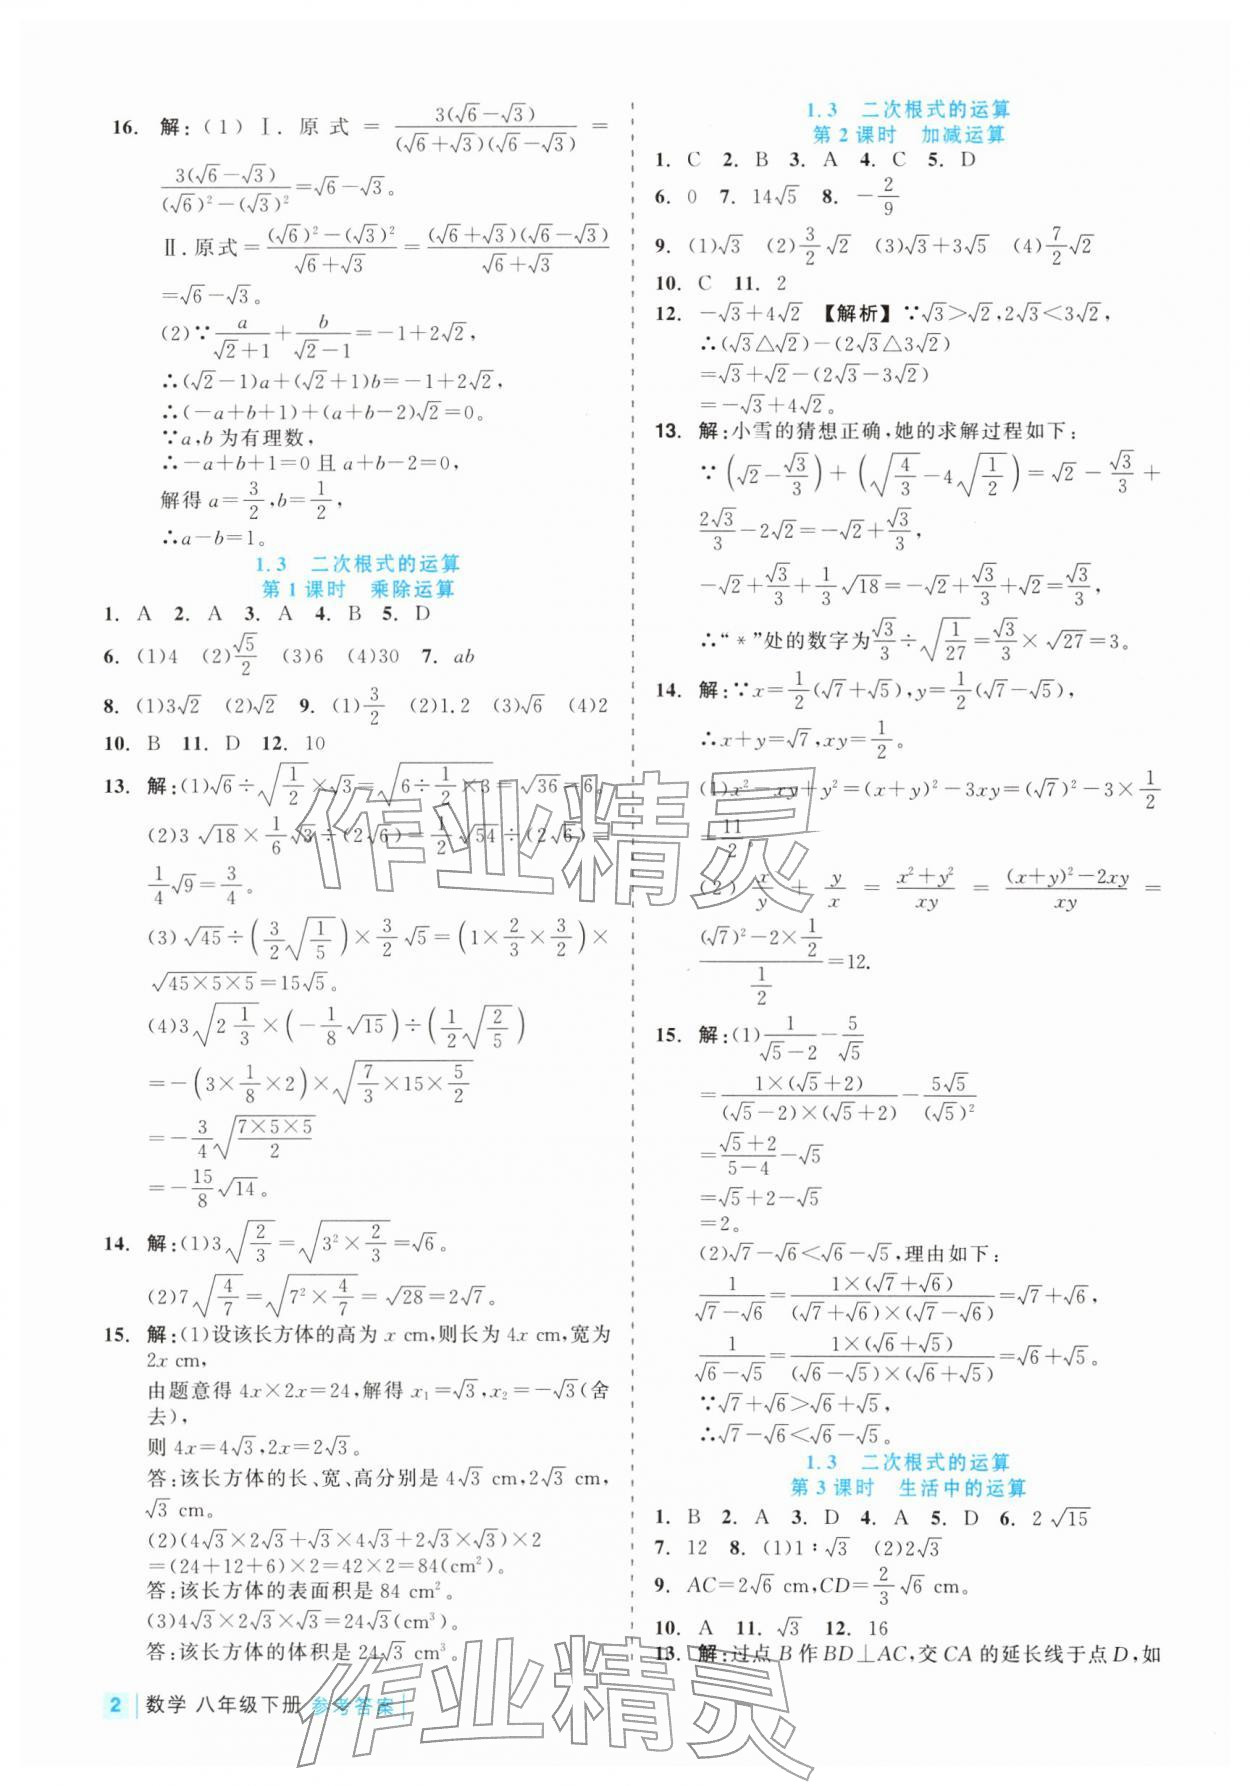 16. 解:(1)Ⅰ.原式=3(√6-√3)/((√6+√3)(√6-√3))=
3(√6-√3)/((√6)²-(√3)²)=√6-√3。
Ⅱ.原式=((√6)²-(√3)²)/(√6+√3)=(√6+√3)(√6-√3)/(√6+√3)
=√6-√3。
(2)∵a/(√2+1)+b/(√2-1)=-1+2√2,
∴(√2-1)a+(√2+1)b=-1+2√2,
∴(-a+b+1)+(a+b-2)√2=0。
∵a,b为有理数,
∴-a+b+1=0且a+b-2=0,
解得a=3/2,b=1/2,
∴a-b=1。
1.3 二次根式的运算
第1课时 乘除运算
1. A 2. A 3. A 4. B 5. D
6. (1)4 (2)√5/2 (3)6 (4)30 7. ab
8. (1)3√2 (2)√2 9. (1)3/2 (2)1.2 (3)√6 (4)2
10. B 11. D 12. 10
13. 解:(1)√6÷√(1/2)×√3=√(6÷1/2×3)=√36=6。
(2)3√18×1/6√3÷(2√6)=1/2√54÷(2√6)=
1/4√9=3/4。
(3)√45÷(3/2√(1/5))×3/2√5=(1×2/3×3/2)×
√(45×5×5)=15√5。
(4)3√(2 1/3)×(-1/8√15)÷(1/2√(2/5))
=-(3×1/8×2)×√(7/3×15×5/2)
=-3/4√((7×5×5)/2)
=-15/8√14。
14. 解:(1)3√(2/3)=√(3²×2/3)=√6。
(2)7√(4/7)=√(7²×4/7)=√28=2√7。
15. 解:(1)设该长方体的高为x cm,则长为4x cm,宽为
2x cm,
由题意得4x×2x=24,解得x₁=√3,x₂=-√3(舍
去),
则4x=4√3,2x=2√3。
答:该长方体的长、宽、高分别是4√3 cm,2√3 cm,
√3 cm。
(2)(4√3×2√3+√3×4√3+2√3×√3)×2
=(24+12+6)×2=42×2=84(cm²)。
答:该长方体的表面积是84 cm²。
(3)4√3×2√3×√3=24√3(cm³)。
答:该长方体的体积是24√3 cm³。
1.3 二次根式的运算
第2课时 加减运算
1. C 2. B 3. A 4. C 5. D
6. 0 7. 14√5 8. -2/9
9. (1)√3 (2)3/2√2 (3)√3+3√5 (4)7/2√2
10. C 11. 2
12. -√3+4√2 【解析】∵√3>√2,2√3<3√2,
∴(√3△√2)-(2√3△3√2)
=√3+√2-(2√3-3√2)
=-√3+4√2。
13. 解:小雪的猜想正确,她的求解过程如下:
∵(√2-√3/3)+(√(4/3)-4√(1/2))=√2-√3/3+
2√3/3-2√2=-√2+√3/3,
-√2+√3/3+1/3√18=-√2+√3/3+√2=√3/3,
∴“*”处的数字为√3/3÷√(1/27)=√3/3×√27=3。
14. 解:∵x=1/2(√7+√5),y=1/2(√7-√5),
∴x+y=√7,xy=1/2。
(1)x²-xy+y²=(x+y)²-3xy=(√7)²-3×1/2
=11/2。
(2)x/y+y/x=(x²+y²)/xy=((x+y)²-2xy)/xy=
((√7)²-2×1/2)/(1/2)=12.
15. 解:(1)1/(√5-2)-5/√5
=1×(√5+2)/((√5-2)×(√5+2))-5√5/(√5)²
=(√5+2)/(5-4)-√5
=√5+2-√5
=2。
(2)√7-√6<√6-√5,理由如下:
1/(√7-√6)=1×(√7+√6)/((√7+√6)×(√7-√6))=√7+√6,
1/(√6-√5)=1×(√6+√5)/((√6-√5)×(√6+√5))=√6+√5。
∵√7+√6>√6+√5,
∴√7-√6<√6-√5。
1.3 二次根式的运算
第3课时 生活中的运算
1. B 2. A 3. D 4. A 5. D 6. 2√15
7. 12 8. (1)1∶√3 (2)2√3
9. AC=2√6 cm,CD=2/3√6 cm。
10. A 11. √3 12. 16
13. 解:过点B作BD⊥AC,交CA的延长线于点D,如
2 数学 八年级下册 参考答案
作业精灵
作业精灵